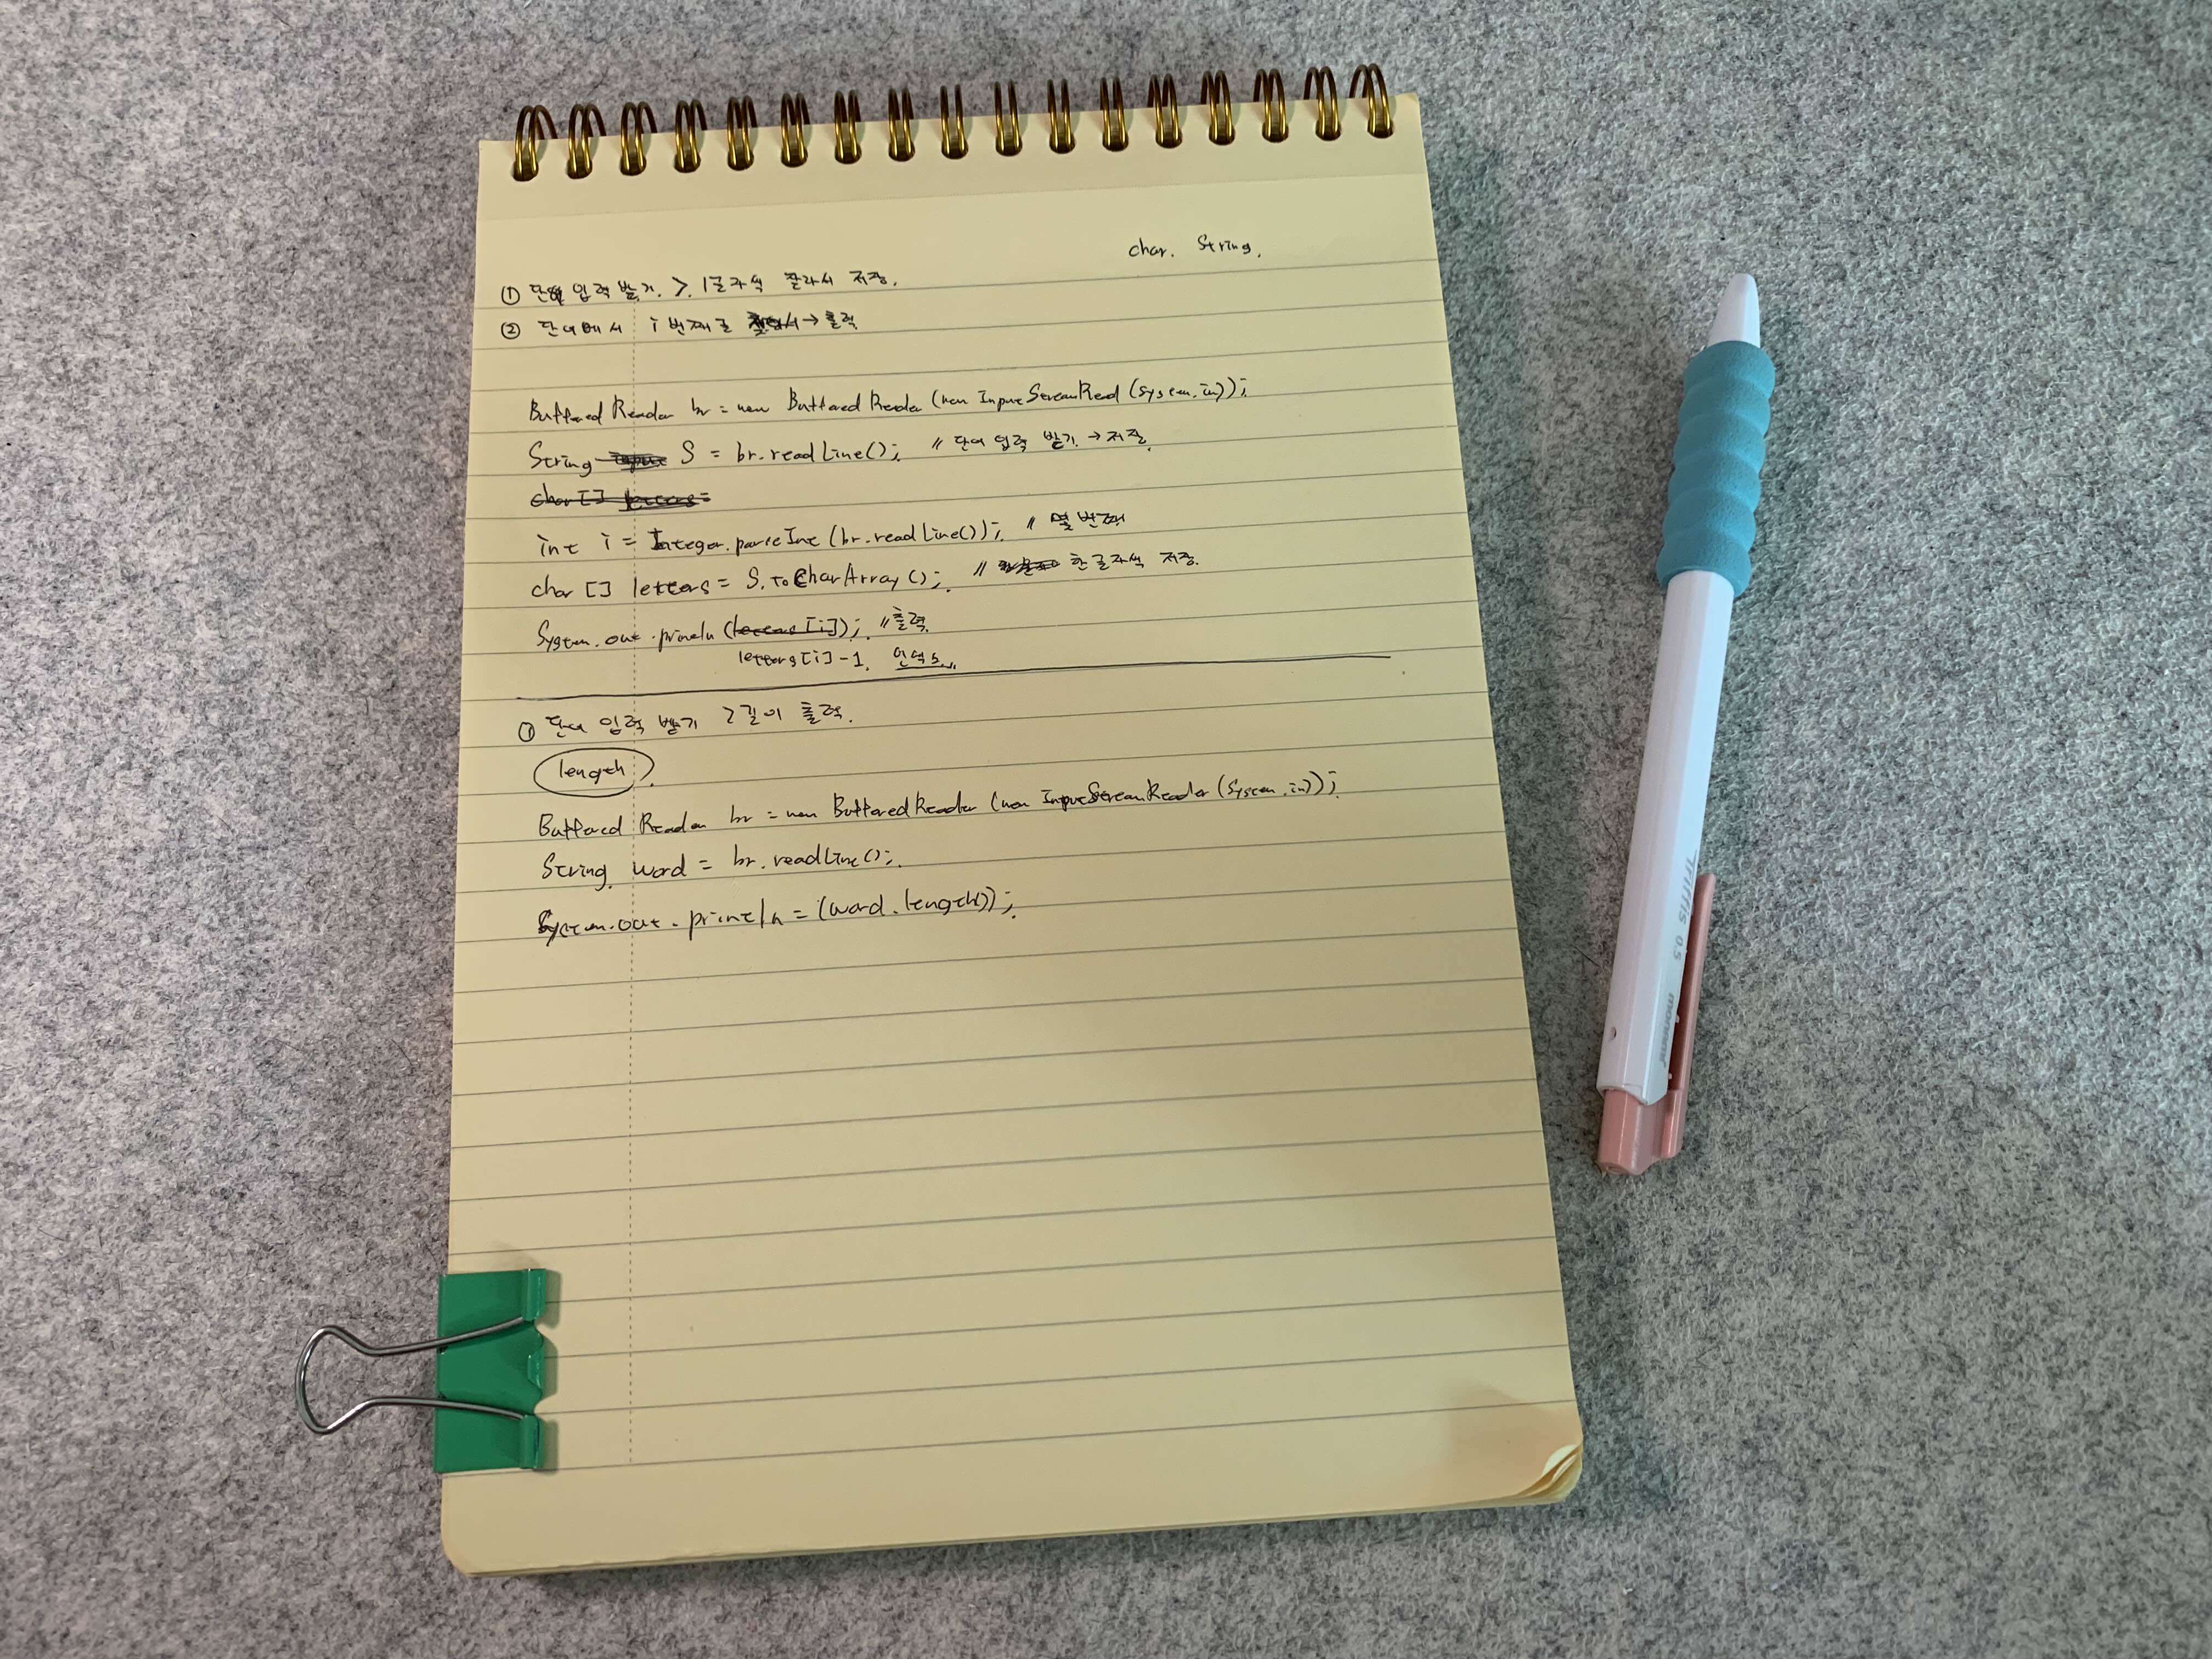 char. String.
① 단어 입력 받기. > 1글자씩 잘라서 저장.
② 단어에서 i번째 글 → 출력
Buffered Reader br = new Buffered Reader (new InputStreamRead (System.in));
String S = br.readLine(); // 단어 입력 받기 → 저장.
char[] letters =
int i = Integer.parseInt (br.readLine()); // 몇 번째
char [] letters = S.toCharArray(); // 한 글자씩 저장.
System.out.println (letters[i]); // 출력.
letters[i]-1. 인덱스
① 단어 입력 받기 > 길이 출력.
length
Buffered Reader br = new BufferedReader (new InputStreamReader (System.in));
String word = br.readLine();
System.out.println = (word.length());
TRIITIS 0.5